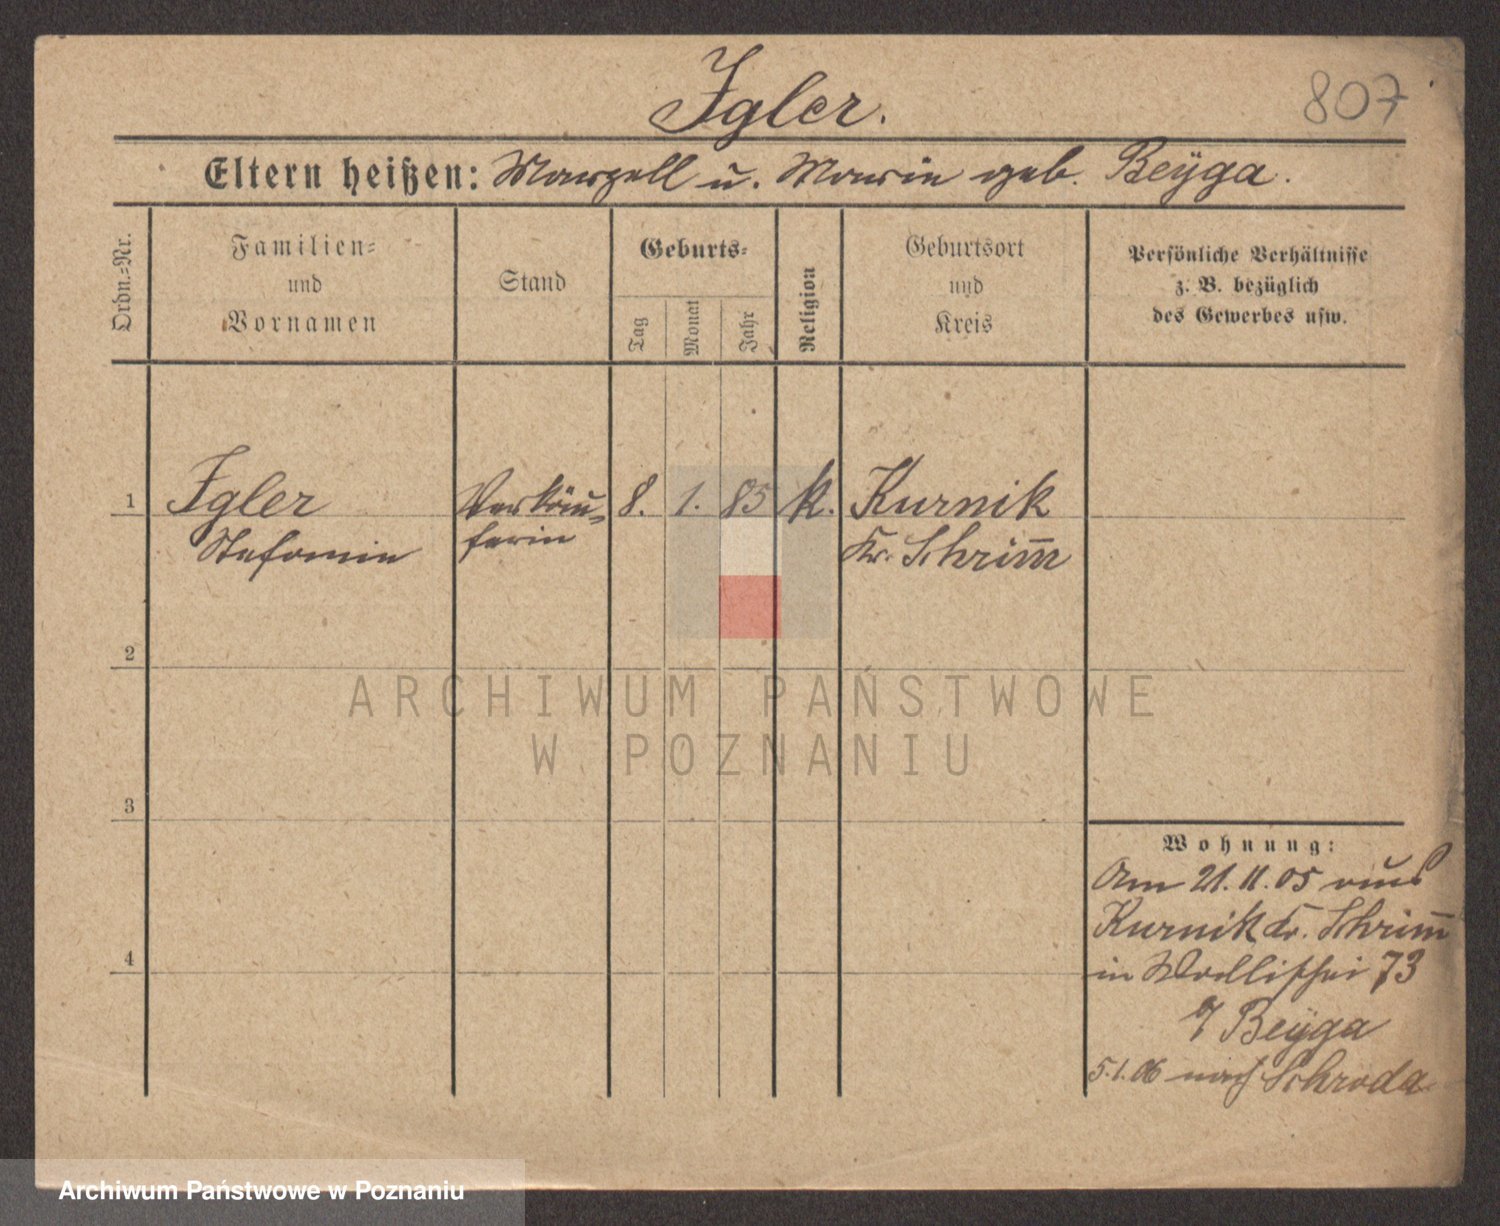 Igler.
807
Eltern heißen: Marzell u. Marie geb. Beÿga.
Ordn.=Nr.
Familien=
und
Vornamen
Stand
Geburts=
Tag
Monat
Jahr
Religion
Geburtsort
und
Kreis
Persönliche Verhältnisse
z. B. bezüglich
des Gewerbes usw.
1
Igler
Stefanie
Verkäu=
ferin
8. 1. 85
k.
Kurnik
Kr. Schrim̄
2
3
4
Wohnung:
Am 21.11.05 aus
Kurnik Kr. Schrim̄
in Wallischei 73
Beÿga
5.1.06 nach Schroda
ARCHIWUM PAŃSTWOWE
W POZNANIU
Archiwum Państwowe w Poznaniu